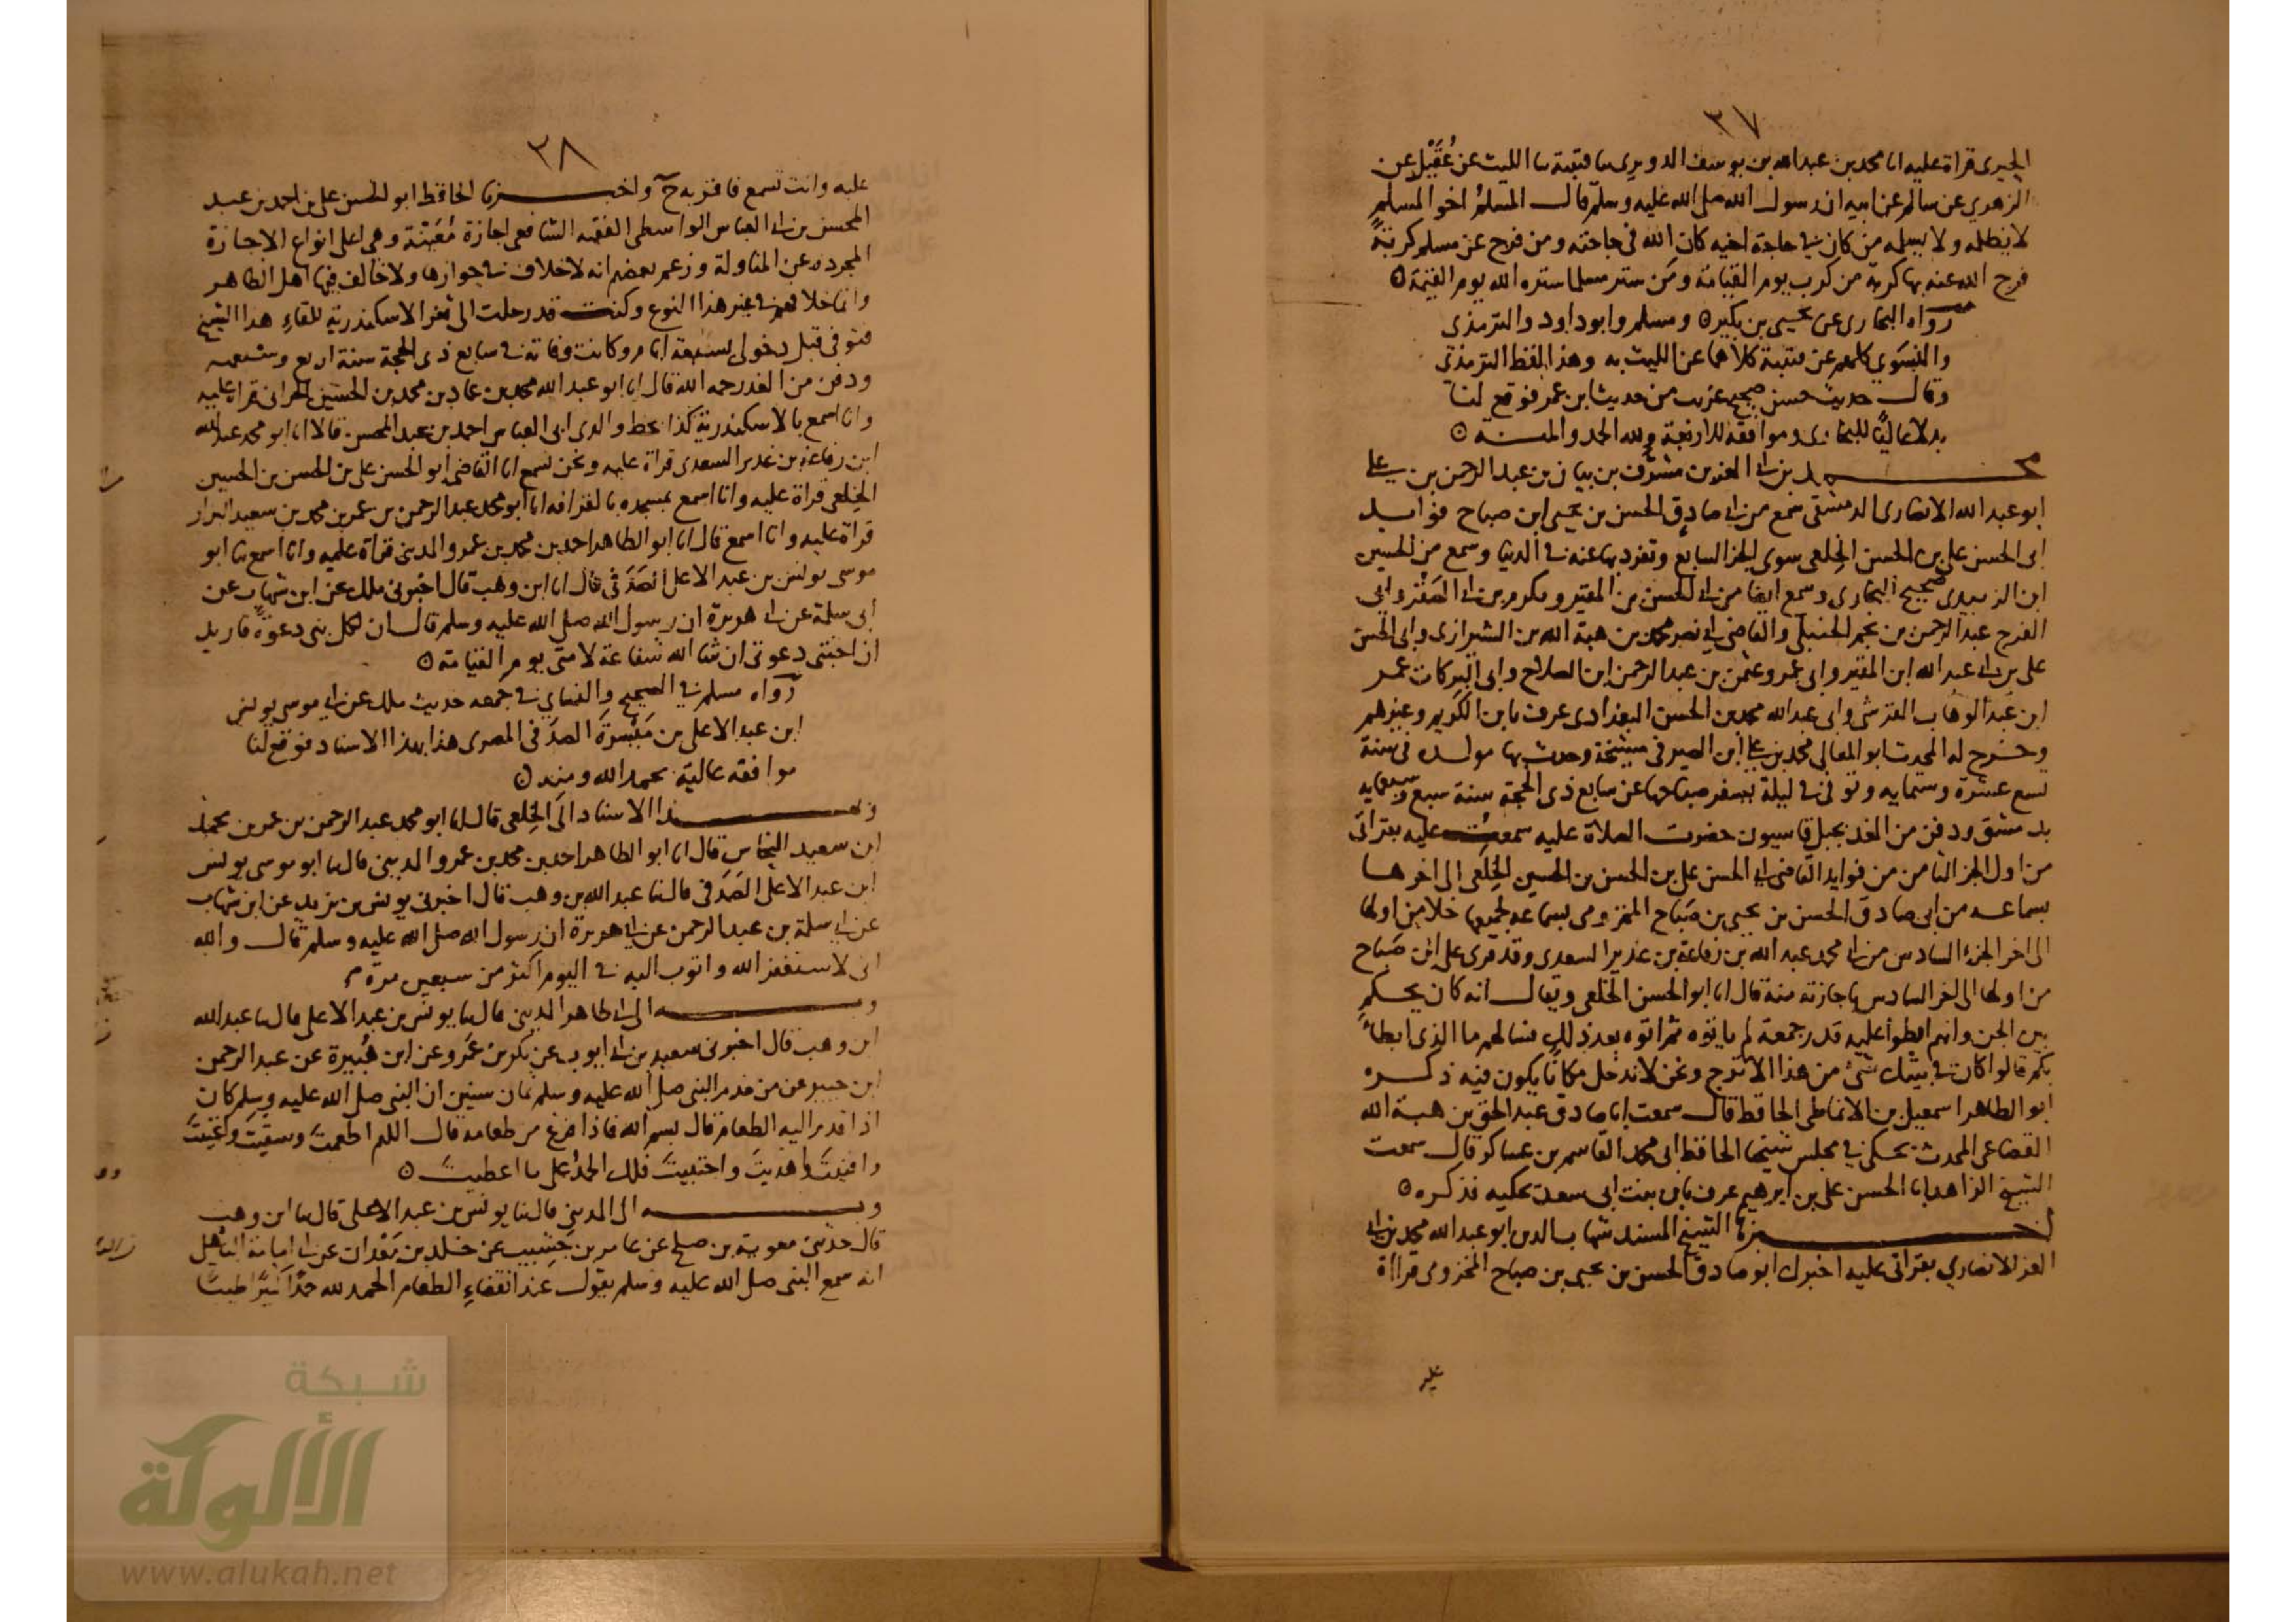 ٣٧
الحيرى قراة عليه انا محمد بن عبد الله بن يوسف الدويرى سا قتيبة سا الليث عن عُقَيْل عن
الزهري عن سالم عن ابيه ان رسول الله صلى الله عليه وسلم قال المسلم اخو المسلم
لا يظلمه ولا يسلمه من كان في حاجة اخيه كان الله في حاجته ومن فرج عن مسلم كربةً
فرج الله عنه بها كربة من كرب يوم القيامة ومن ستر مسلما ستره الله يوم القيمة ⊙
رواه البخارى عن يحيى بن بكير ⊙ ومسلم وابو داود والترمذى
والنسوي كلهم عن قتيبة كلاهما عن الليث به وهذا لفظ الترمذى
وقال حديث حسن صحيح غريب من حديث ابن عمر فوقع لنا
بدلا عاليًا للبخارى وموافقه للاربعة ولله الحمد والمنـه ⊙
محمد بن ابى العز بن مشرف بن بيان بن عبد الرحمن بن على
ابو عبد الله الانصارى الدمشقى سمع من ابى صادق الحسن بن يحيى ابن صباح فوايد
ابى الحسن على بن الحسن الخلعى سوى الجز السابع وتفرد بها عنه في الدنيا وسمع من الحسين
ابن الزبيدى صحيح البخارى وسمع ايضا من ابى الحسن بن المقير ومكرم بن ابى الصَقْر وابى
الفرج عبد الرحمن بن نجم الحنبلى والقاضى ابى نصر محمد بن هبة الله بن الشيرازى وابى الحسن
على بن ابى عبد الله ابن المقير وابى عمرو عثمن بن عبد الرحمن ابن الصلاح وابى البركات عمر
ابن عبد الوهاب القرشى وابى عبد الله محمد بن الحسن البغدادى عرف بابن الكَرِيم وغيرهم
وخرج له المحدث ابو المعالى محمد بن على ابن الصيرفى مشيخة وحدث بها مولده فى سنة
تسع عشرة وستمايه وتوفى فى ليلة يسفر صباحها عن سابع ذى الحجة سنة سبع وسبعمايه
بدمشق ودفن من الغد بجبل قاسيون حضرت الصلاة عليه سمعت عليه بقراتى
من اول الجز الثامن من فوايد القاضى ابى الحسن على بن الحسن بن الحسين الخِلَعى الى اخرها
بسماعه من ابى صادق الحسن بن يحيى بن صَبَاح المخزومى بسماعه لجميعها خلا من اولها
الى اخر الجزء السادس من ابى محمد عبد الله بن رفاعة بن غدير السعدى وقد قرى على ابن صَباح
من اولها الى اخر السادس باجازته منه قال انا ابو الحسن الخلعى ويقال انه كان يحكم
بين الجن وانهم ابطوا عليه قدر جمعة لم ياتوه ثم اتوه بعد ذلك فسالهم ما الذى ابطاء
بكم قالوا كان فى بيتك شىء من هذا الاترج ونحن لا ندخل مكانًا يكون فيه ذكـره
ابو الطاهر اسمعيل بن الانماطى الحافظ قال سمعت ابا صادق عبد الحق بن هبة الله
القضاعى المحدث يحكى فى مجلس شيخنا الحافظ ابى محمد القاسم بن عساكر قال سمعت
الشيخ الزاهد ابا الحسن على بن ابرهيم عرف بابن بنت ابى سعد يحكيه فذكره ⊙
اخبرنا الشيخ المسند شهاب الدين ابو عبد الله محمد بن ابى
العز الانصاري بقراتى عليه اخبرك ابو صادق الحسن بن يحيى بن صباح المخزومى قراة
عليه
٣٨
عليه وانت تسمع فاقر به ح واخبـرنا الحافظ ابو الحسن على بن احمد بن عبد
المحسن بن ابى العباس الواسطى الفقيه الشافعى اجازة مُعَيّنة وهى اعلى انواع الاجازة
المجرده عن المناولة وزعم بعضهم انه لا خلاف فى جوازها ولا خالف فيها اهل الظاهر
وانما خلافهم فى غير هذا النوع وكنت قد رحلت الى ثغر الاسكندرية للقاءِ هذا الشيخ
فتوفى قبل دخولى بسبعة ايام وكانت وفاته فى سابع ذى الحجة سنة اربع وسبعمايه
ودفن من الغد رحمه الله قال انا ابو عبد الله محمد بن عماد بن محمد بن الحسين الحرانى قراة عليه
وانا اسمع بالاسكندرية كذا بخط والدى ابى العباس احمد بن عبد المحسن قالا انا ابو محمد عبد الله
ابن رفاعة بن غدير السعدى قراة عليه ونحن نسمع انا القاضى ابو الحسن على بن الحسن بن الحسين
الخِلعى قراة عليه وانا اسمع بمسجده بالقرافه انا ابو محمد عبد الرحمن بن عمر بن محمد بن سعيد البزار
قراة عليه وانا اسمع قال انا ابو الطاهر احمد بن محمد بن عمرو المدينى قراة عليه وانا اسمع نا ابو
موسى يونس بن عبد الاعلى الصَدَفى قال انا ابن وهب قال اخبرنى ملك عن ابن شهاب عن
ابى سلمة عن ابى هريرة ان رسول الله صلى الله عليه وسلم قال ان لكل نبى دعوةً فاريد
ان اختبى دعوتى ان شا الله شفاعة لامتى يوم القيامة ⊙
رواه مسلم فى الصحيح والنساى فى جمعه حديث ملك عن ابى موسى يونس
ابن عبد الاعلى بن مَيْسَرَة الصدَفى المصرى هذا بهذا الاسناد فوقع لنا
موافقه عالية بحمد الله ومنه ⊙
وبهذا الاسناد الى الخِلعى قال انا ابو محمد عبد الرحمن بن عمر بن محمد
ابن سعيد النخاس قال انا ابو الطاهر احمد بن محمد بن عمرو المدينى قال سا ابو موسى يونس
ابن عبد الاعلى الصَدَفى قال سا عبد الله بن وهب قال اخبرنى يونس بن يزيد عن ابن شهاب
عن ابى سلمة بن عبد الرحمن عن ابى هريرة ان رسول الله صلى الله عليه وسلم قال والله
انى لاستغفر الله واتوب اليه فى اليوم اكثر من سبعين مرّة
وبه الى ابى طاهر المدينى قال سا يونس بن عبد الاعلى قال سا عبد الله
ابن وهب قال اخبرنى سعيد بن ابى ايوب عن بكر بن عَمْرو عن ابن هُبيرة عن عبد الرحمن
ابن جبير عن من خدم النبى صلى الله عليه وسلم ثمان سنين ان النبى صلى الله عليه وسلم كان
اذا قدم اليه الطعام قال بسم الله فاذا فرغ من طعامه قال اللهم اطعمتَ وسقيتَ واغنيتَ
واقنيتَ واهديتَ واجتبيتَ فلك الحمدُ على ما اعطيتَ ⊙
وبه الى المدينى قال سا يونس بن عبد الاعلى قال سا ابن وهب
قال حدثنى معوية بن صلح عن عامر بن جَشِيب عن خلد بن مَعْدان عن ابى امامة الباهلى
انه سمع النبى صلى الله عليه وسلم يقول عند انقضاءِ الطعام الحمد لله حمدًا كثيرًا طيبًا
شبكة
الألوكة
www.alukah.net